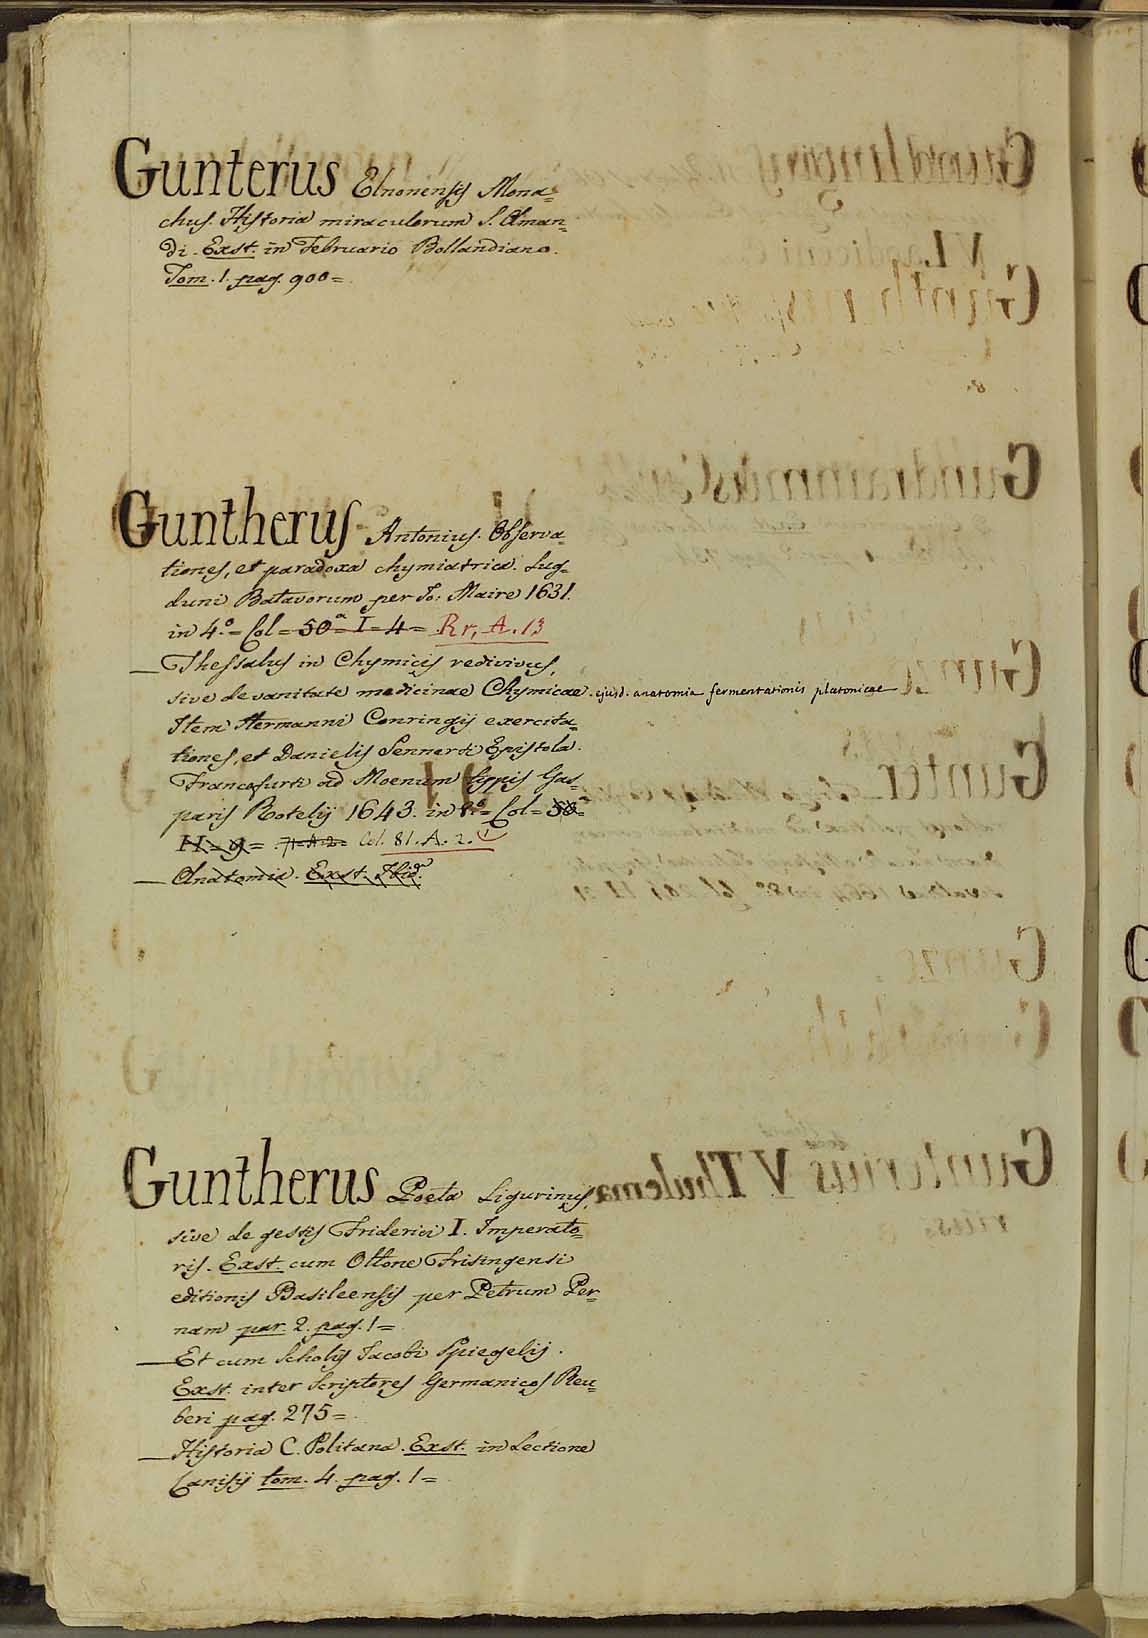 Gunterus Elnonensis Mona=
chus. Historia miraculorum S. Aman=
di. Exst. in Februario Bollandiano.
Tom. 1. pag. 900=
Guntherus Antonius. Observa=
tiones, et paradoxa chymiatrica. Lug=
duni Batavorum per Jo: Maire 1631.
in 4.º= Col= 50ª I= 4= Rr, A. 13
Thessalus in Chymicis redivivus,
sive de vanitate medicinae Chymicae. ejusd. anatomia fermentationis platonicae
Item Hermanni Conringij exercita=
tiones, et Danielis Sennerti Epistola.
Francofurti ad Moenum typis Gas=
paris Rotelij 1643. in 8.º= Col= 50=
H= 9= 71=A.2= Col. 81. A. 2.
Anatomia. Exst. Ibid.
Guntherus Poeta Ligurinus,
sive de gestis Friderici I. Imperato=
ris. Exst. cum Ottone Frisingensi
editionis Basileensis per Petrum Per=
nam par. 2. pag. 1=
Et cum Scholijs Jacobi Spiegelij.
Exst. inter Scriptores Germanicos Reu=
beri pag. 275=
Historia C. Politana. Exst. in Lectione
Canisij tom. 4. pag. 1=